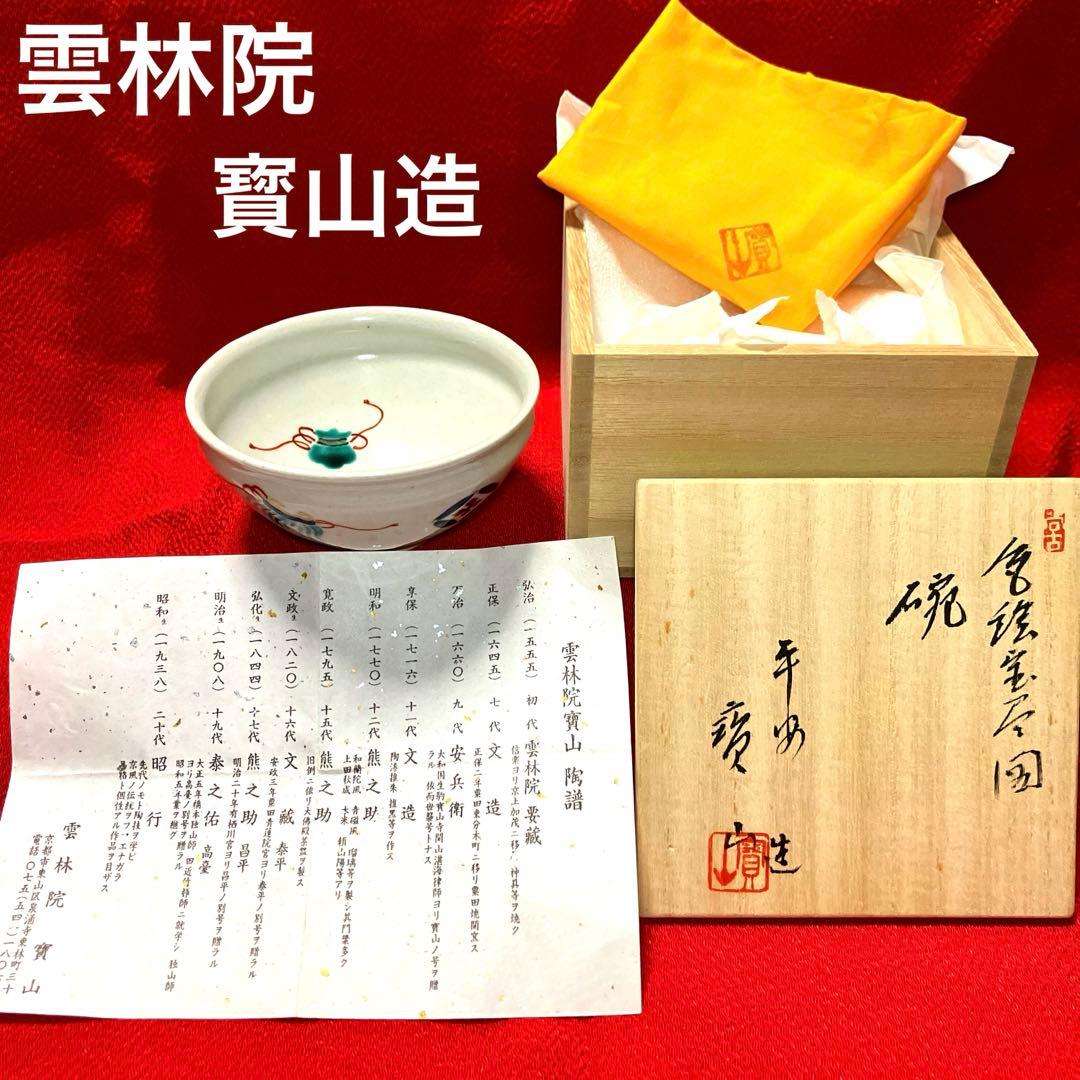 雲林院
寳山造
寳山
色絵宝尽図
碗
平安
寳山造
寳山
雲林院寶山 陶譜
弘治(一五五五) 初代 雲林院 要藏
信楽ヨリ京上加茂ニ移リ 神具等ヲ焼ク
正保(一六四五) 七代 文造
正保二年粟田東分木町ニ移リ粟田焼開窯ス
万治(一六六〇) 九代 安兵衛
大和国生駒寶山寺開山湛海律師ヨリ寶山ノ号ヲ贈
ラル 依而世襲号トナス
享保(一七一六) 十一代 文造
陶漆推朱 推黒等ヲ作ス
明和(一七七〇) 十二代 熊之助
和蘭陀風 青磁風 瑠璃等ヲ製シ其門葉多ク
上田秋成 大米 頼山陽等アリ
寛政(一七九五) 十五代 熊之助
旧例ニ依リ大佛殿茶器ヲ製ス
文政生(一八二〇) 十六代 文藏 泰平
安政三年粟田青蓮院宮ヨリ泰平ノ別号ヲ贈ラル
弘化生(一八四四) 十七代 熊之助 昌平
明治二十年有栖川宮ヨリ昌平ノ別号ヲ贈ラル
明治生(一九〇八) 十九代 泰之佑 高臺
大正五年橋本独山師 田近竹邨師ニ就学シ 独山師
ヨリ高臺ノ別号ヲ贈ラル
昭和五年業ヲ継グ
昭和生(一九三八) 二十代 昭行
先代ノモト陶技ヲ学ビ
京風ノ伝技ヲフマエナガラ
品格ト個性アル作品ヲ目ザス
雲林院 寶山
京都市東山区泉涌寺東林町三十
電話〇七五(五四一)一八〇